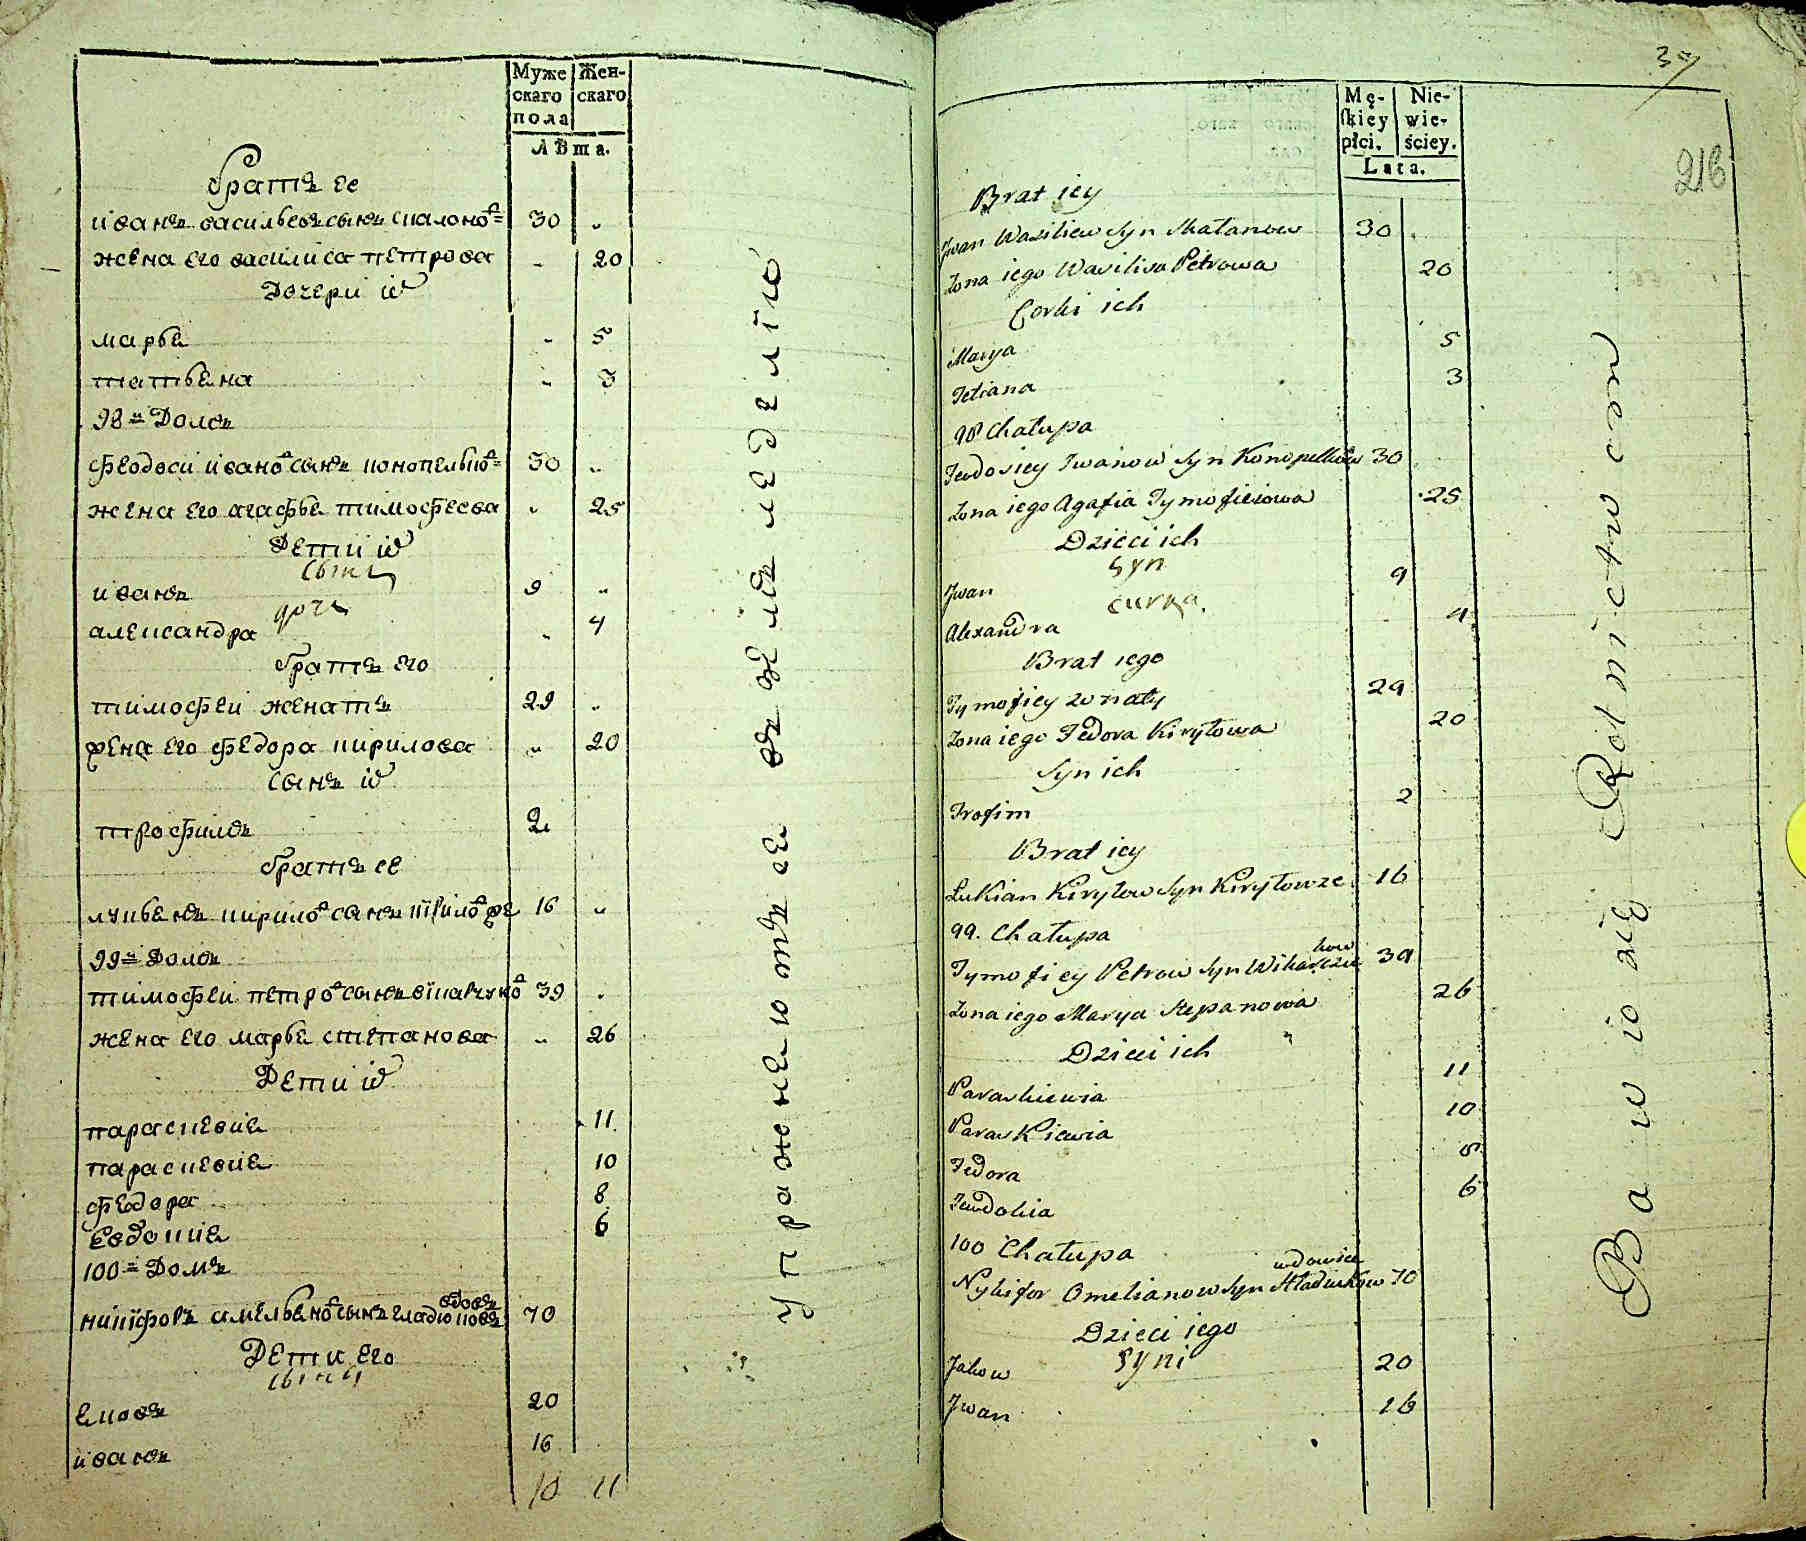 Муже Жен-
скаго скаго
пола
Лѣта.
братъ ее
иванъ васильевъ сынъ 30 „
жена его василиса петрова „ 20
Дочери их
марья „ 5
татьяна „ 3
98= Домъ
феодоси иванов сынъ конопельков= 30 „
жена его агафья тимофеева „ 25
Дети их
сын
иванъ 9 „
дочь
александра „ 4
братъ его
тимофеи женатъ 29 „
жена его федора кирилова „ 20
сынъ их
трофимъ 2
братъ ее
лукьянъ кирилов сынъ 16 „
99= Домъ
тимофеи петров сынъ 39 „
жена его марья степанова „ 26
Дети их
параскевия 11
параскевия 10
федора 8
Евдокия 6
100= Домъ
вдовъ
никифоръ амельянов сынъ гладковъ 70
Дети его
сыны
яковъ 20
иванъ 16
10 11
упражняютъся въ земледелию
37
216
Mę- Nie-
skiey wie-
płci. ściey.
Lata.
Brat iey
Jwan Wasiliew Syn Skałanow 30
Żona iego Wasilisa Petrowa 20
Corki ich
Marya 5
Tetiana 3
98 Chałupa
Teodosiey Jwanow Syn Konopelkow 30
Żona iego Agafia Tymofieiowa 25
Dzieci ich
Syn
Jwan 9
curka
Alexandra 4
Brat iego
Tymofiey żonaty 29
Żona iego Fedora Kiryłowa 20
Syn ich
Trofim 2
Brat iey
Łukian Kiryłow Syn 16
99. Chałupa
Tymofiey Petrow Syn 39
Żona iego Marya Stepanowa 26
Dzieci ich
Paraskiewia 11
Paraskiewia 10
Fedora 8
Jewdokia 6
100 Chałupa
wdowiec
Nykifor Omelianow Syn Hładukow 70
Dzieci iego
Syni
Jakow 20
Jwan 16
Bawio się Rolnictwem